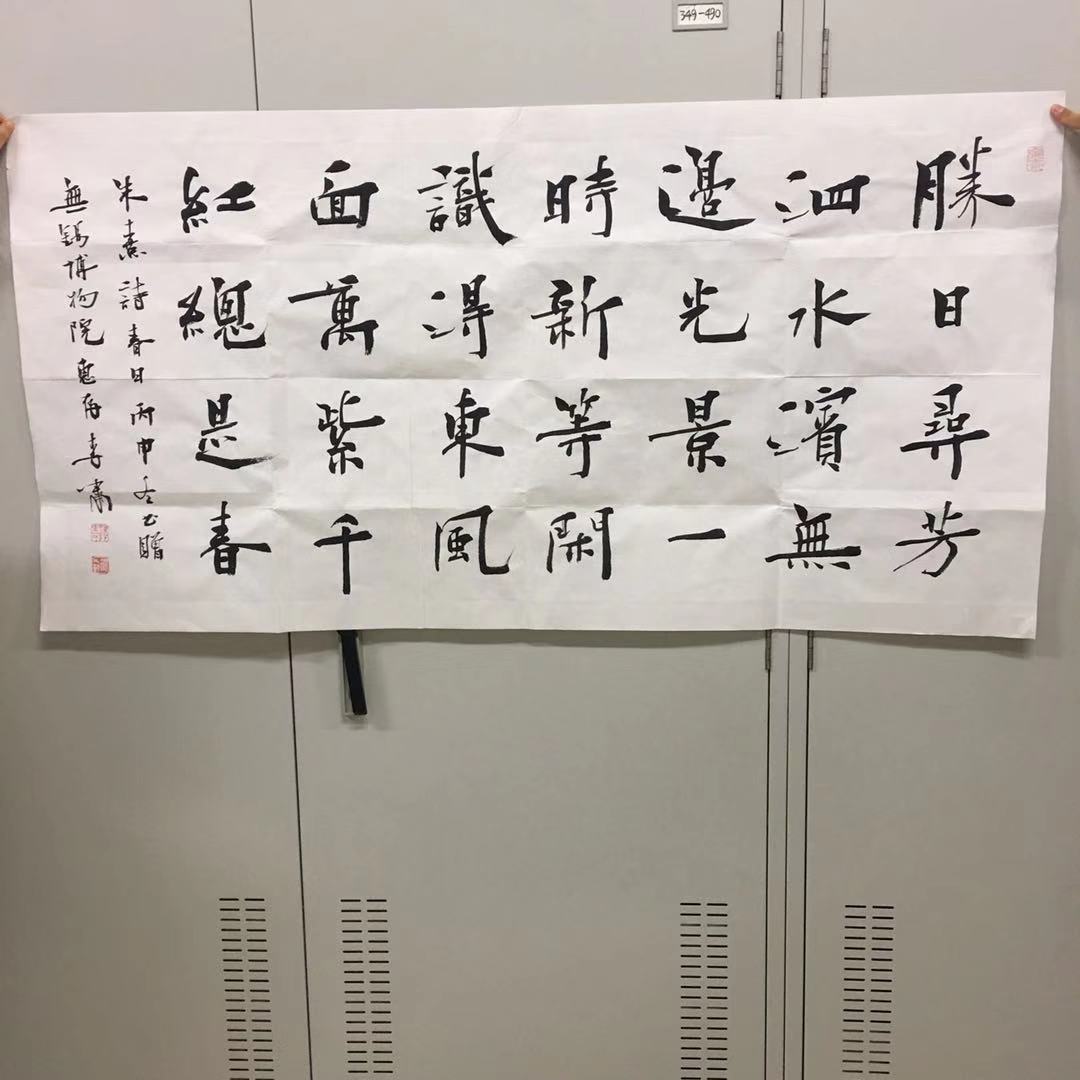 349-490
勝日尋芳
泗水濱無
邊光景一
時新等閑
識得東風
面萬紫千
紅總是春
朱熹詩春日丙申冬书贈
無錫博物院惠存李嘯